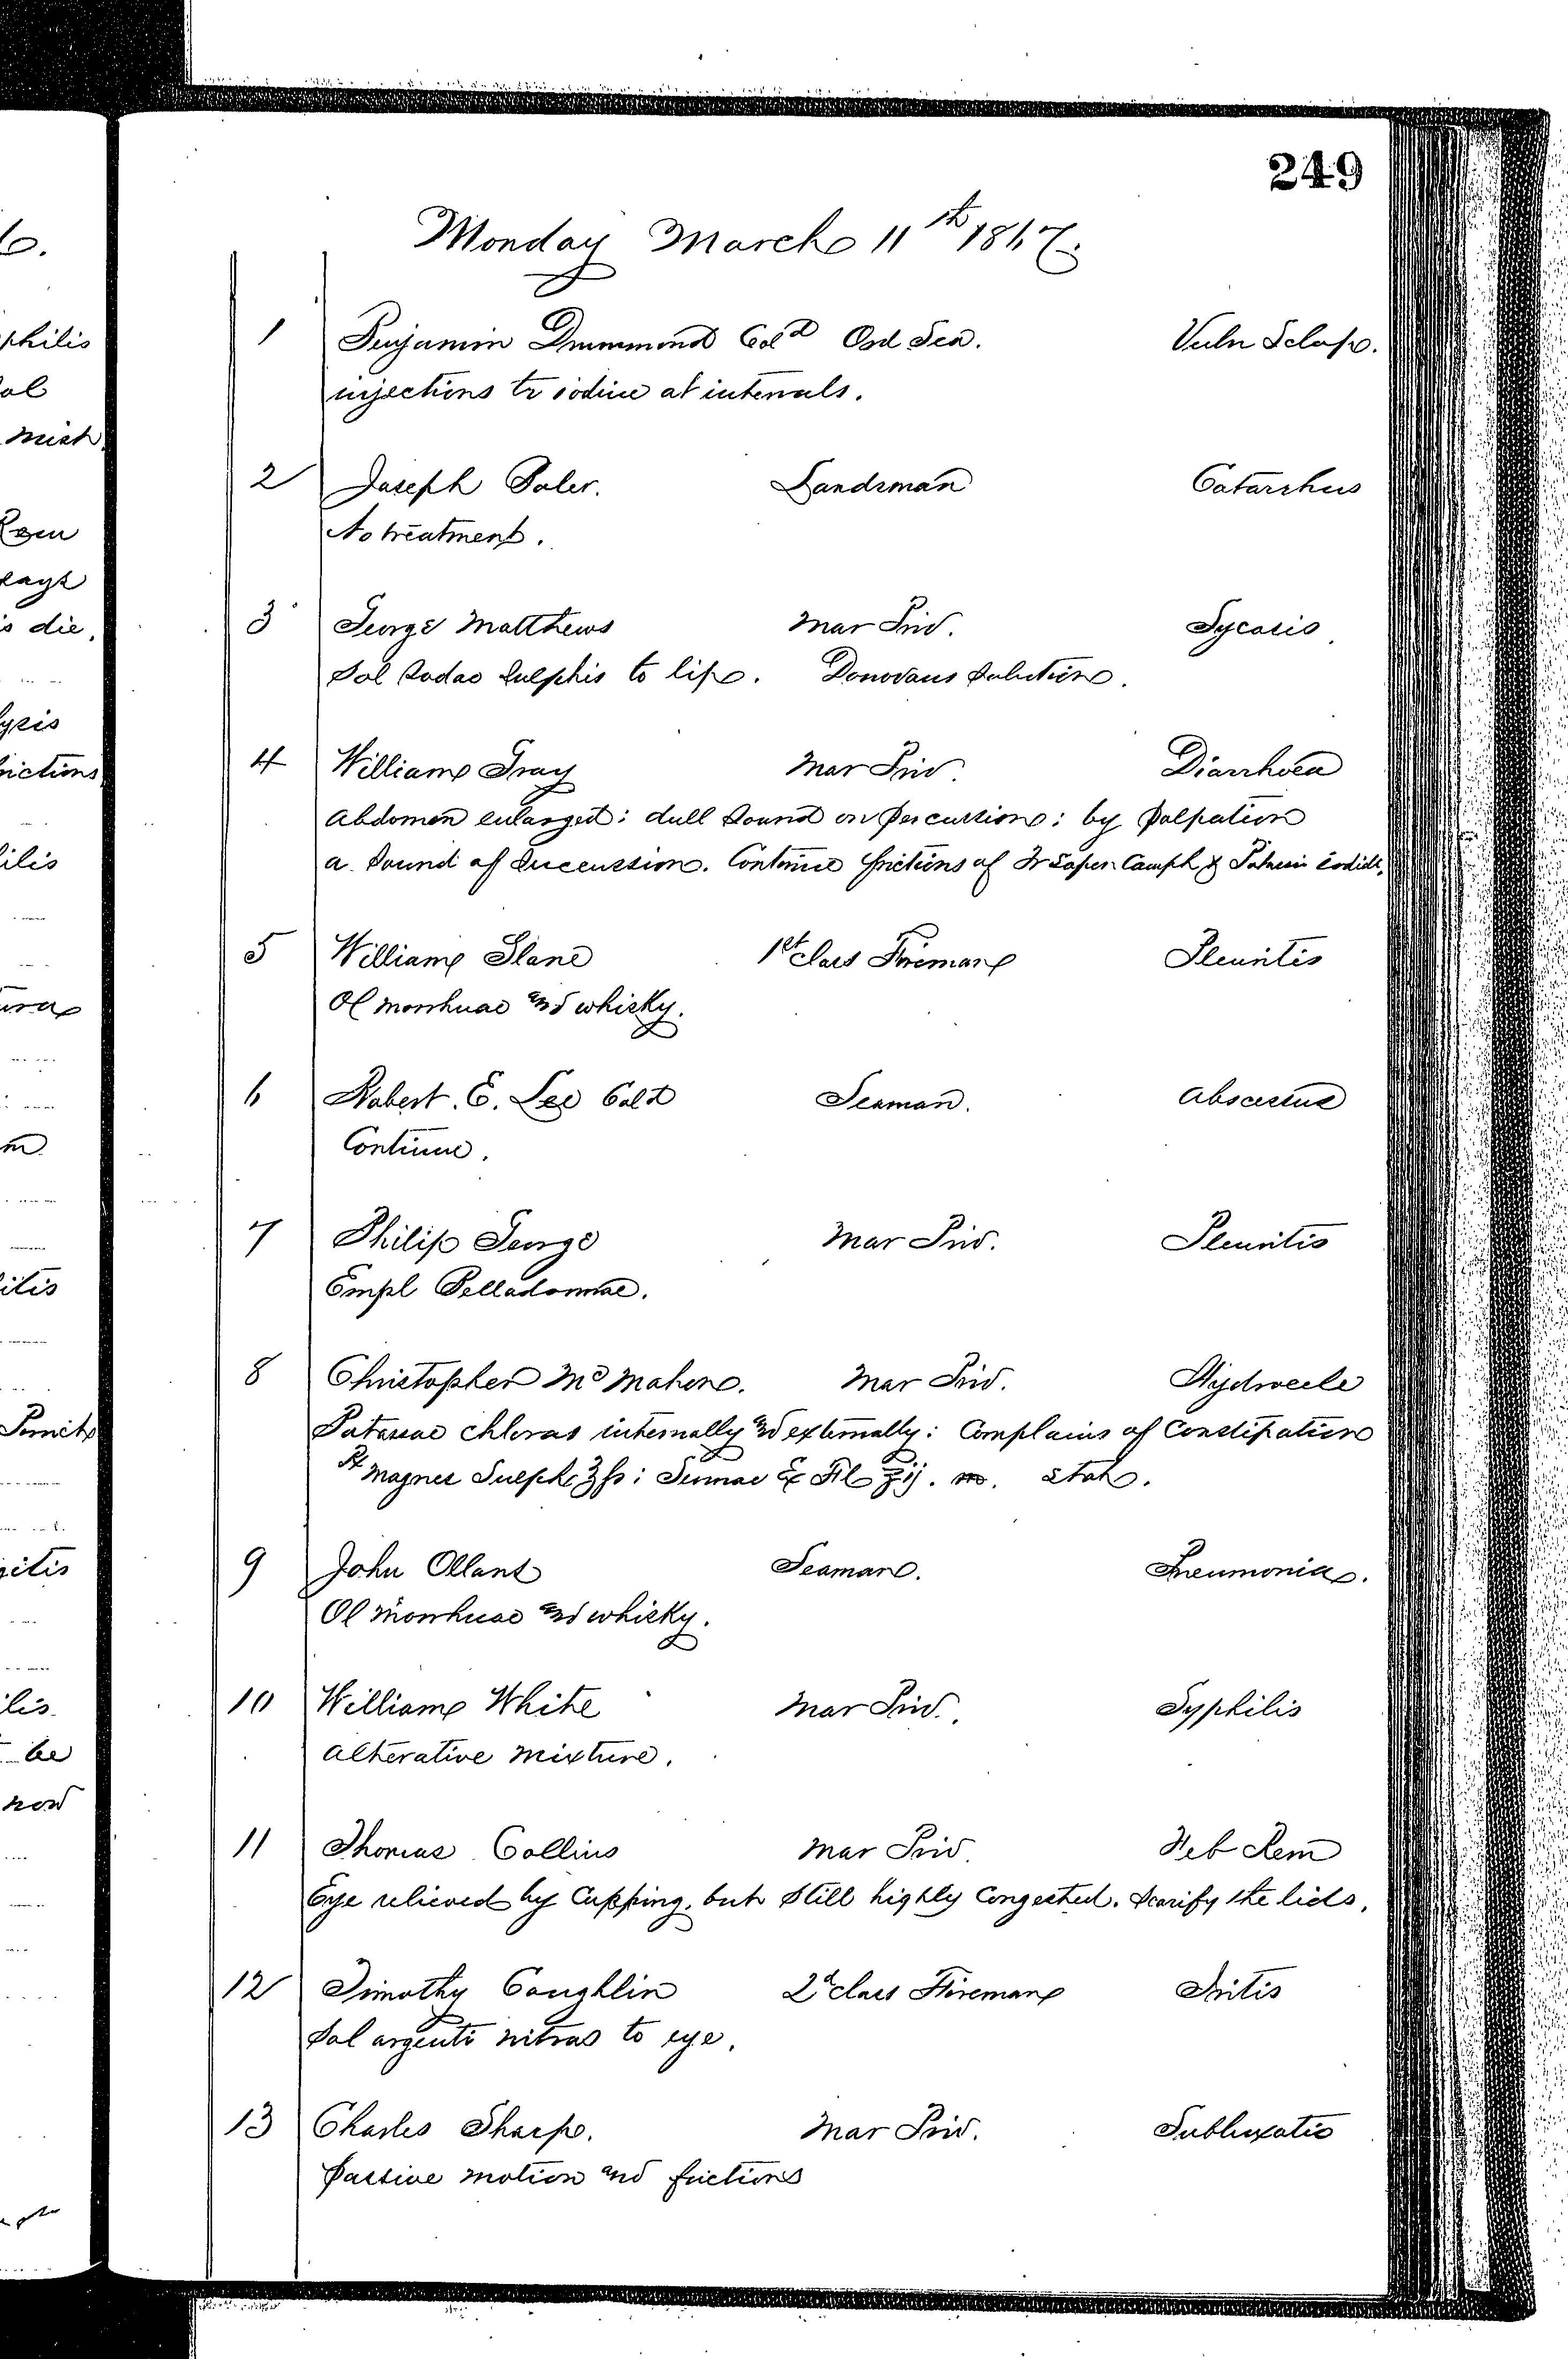 249
Monday March 11th 1867.
1 Benjamin Drummond Cold Ord Sea. Vuln Sclop.
injections tr iodine at intervals.
2 Joseph Boler. Landsman Catarrhus
No treatment.
3 George Matthews Mar Priv. Sycosis
Sol Sodae Sulphis to lip. Donovans Solution.
4 William Gray Mar Priv. Diarrhoea
Abdomen enlarged: dull sound on percussion: by palpation
a sound of succussion. Continue frictions of Tr Sapon Camph & Potassii iodidi.
5 William Slane 1st class Fireman Pleuritis
Ol morrhuae and whisky.
6 Robert. E. Lee Cold Seaman. Abscessus
Continue.
7 Philip George Mar Priv. Pleuritis
Empl Belladonnae.
8 Christopher Mc Mahon. Mar Priv. Hydrocele
Potassae chloras internally and externally: Complains of Constipation
Rx Magnes Sulph ℥ss: Sennae Ex Fl ʒij. m. Stat.
9 John Ollant Seaman. Pneumonia.
Ol morrhuae and whisky.
10 William White Mar Priv. Syphilis
Alterative mixture.
11 Thomas Collins Mar Priv. Feb Rem
Eye relieved by Cupping, but still highly congested. Scarify the lids.
12 Timothy Coughlin 2d class Fireman Iritis
Sol argenti nitras to eye.
13 Charles Sharp. Mar Priv. Subluxatio
Passive motion and frictions